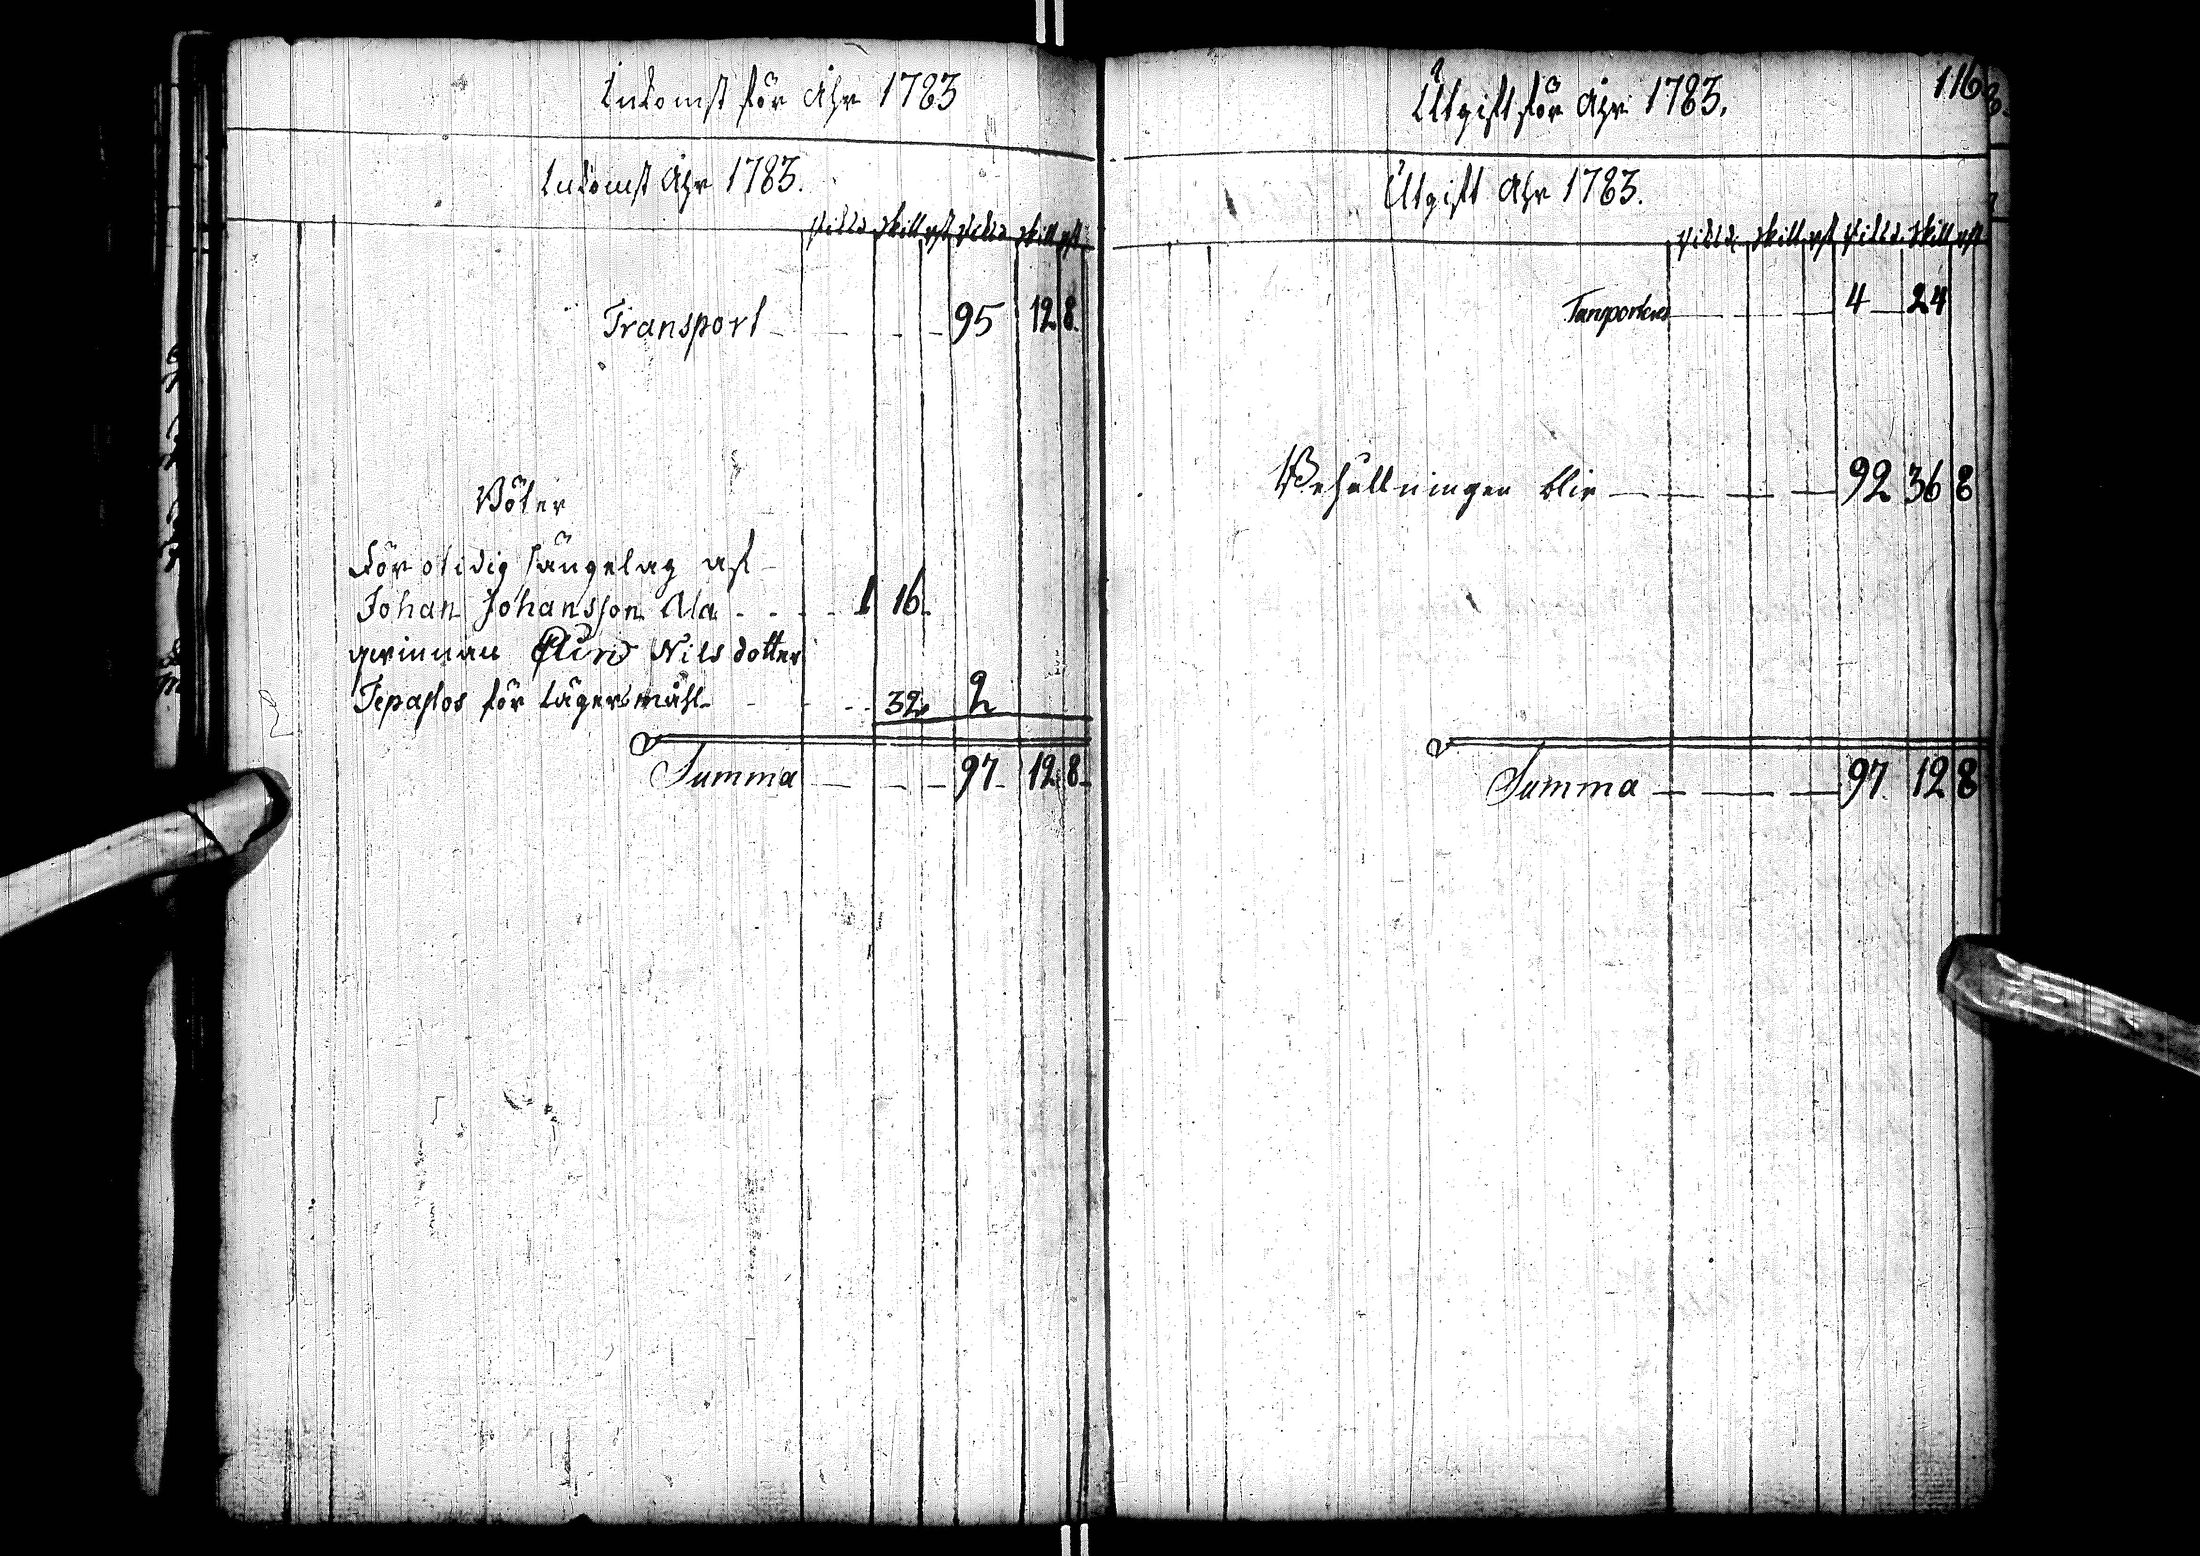 Inkomst för Åhr 1783
Inkomst Åhr 1783.
Rikd. Skill. rst. Rikd. Skill. rst.
Transport 95 12 8.
Böter
För otidig sängelag af
Johan Johansson Ala 1 16.
qvinnan Elin Nils dotter
Tepastos för Lägersmåhl 32. 2
Summa 97. 12. 8.
Utgift för Åhr 1783. 116
Utgift Åhr 1783.
Rikd. Skill. rst. Rikd. Skill. rst.
4 24
Behållningen blir 92 36 8
Summa 97. 12 8